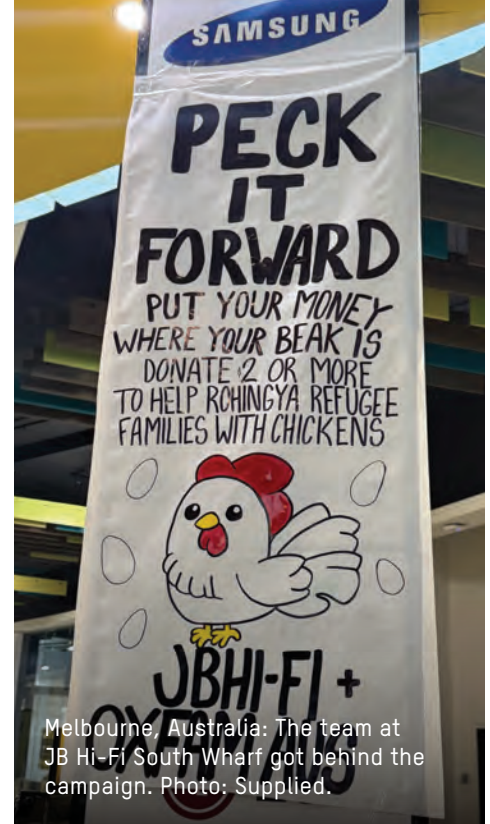 SAMSUNG
PECK
IT
FORWARD
PUT YOUR MONEY
WHERE YOUR BEAK IS
DONATE $2 OR MORE
TO HELP RCHINGYA REFUGEE
FAMILIES WITH CHICKENS
JBHI-FI +
OXFAM AUS
Melbourne, Australia: The team at
JB Hi-Fi South Wharf got behind the
campaign. Photo: Supplied.